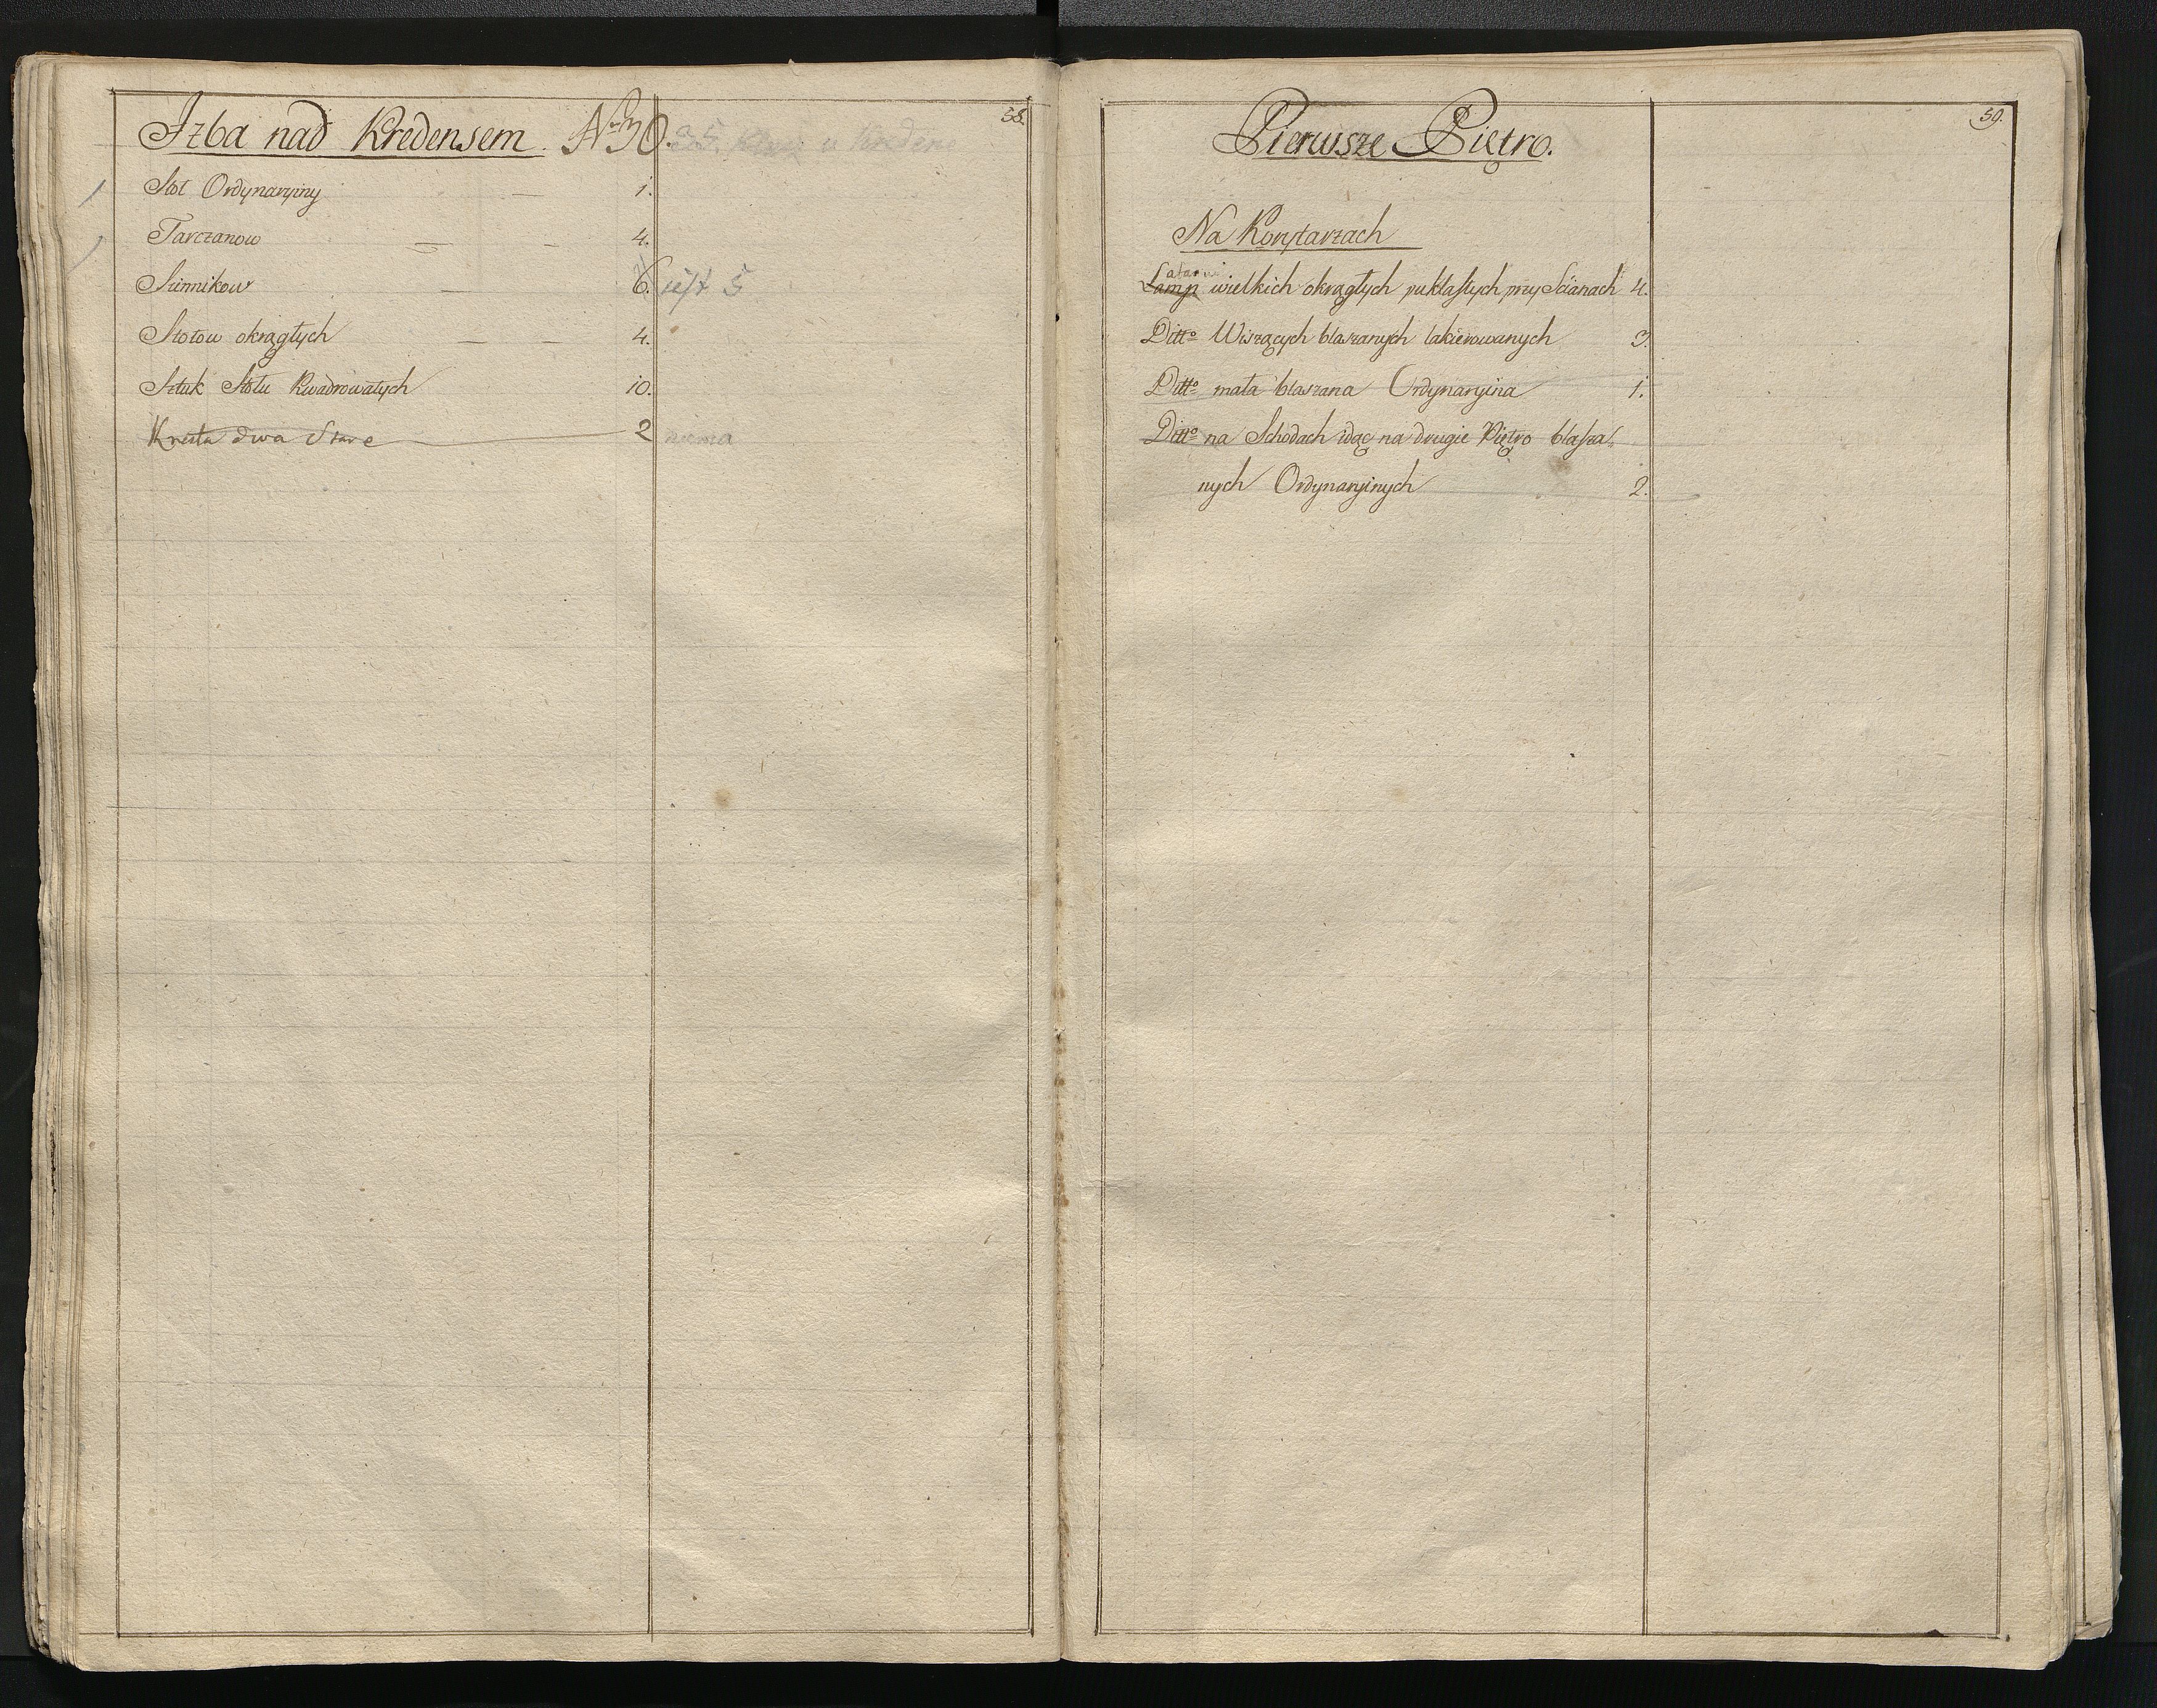 58.
Izba nad Kredensem. No 30.
Stoł Ordynaryiny — 1.
Tarczanow — — 4.
Siennikow — 6. iest 5
Stołow okrągłych — — 4.
Sztuk Stołu Kwadrowatych 10.
Krzesła dwa Stare — 2 niema
59.
Pierwsze Piętro.
Na Korytarzach
Latarni
Lamp wielkich okrągłych puklastych przy Scianach 4.
Ditto Wiszących blaszanych lakierowanych 3.
Ditto mała blaszana Ordynaryina 1.
Ditto na Schodach idąc na drugie Piętro blasza
nych Ordynaryinych 2.